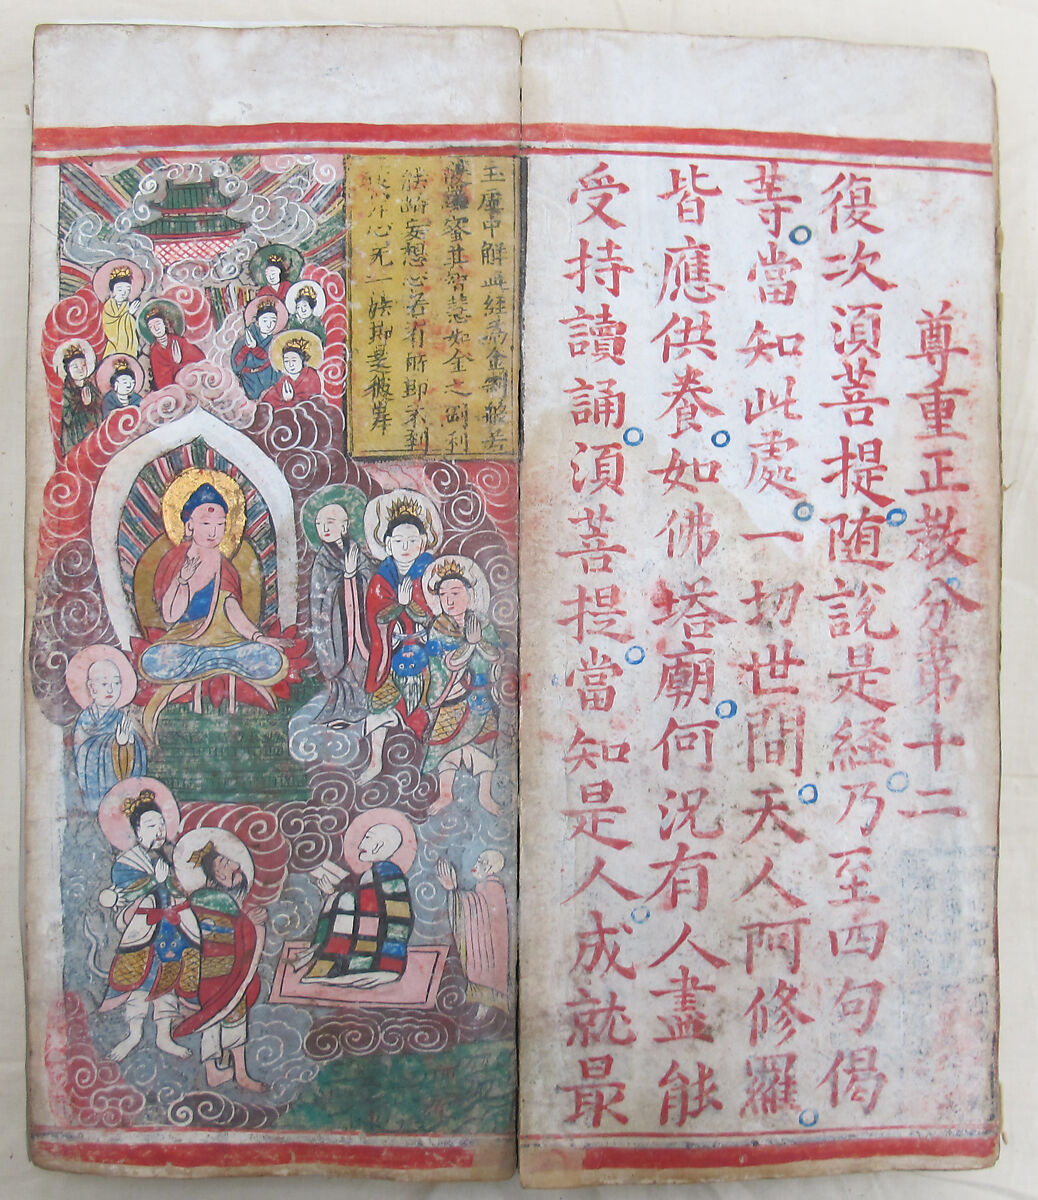 尊重正教。分第十二
復次須菩提。随說是経。乃至四句偈
等。當知此處。一切世間。天人阿修羅。
皆應供養。如佛塔廟。何況有人盡能
受持讀誦。須菩提。當知是人。成就最
虛中解此経為金剛般若
羅密智慧如金之剛利
妄想心若有所即未到
心无一法即是彼岸